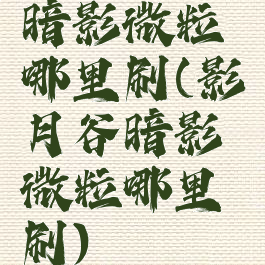 暗影微粒
哪里刷(影
月谷暗影
微粒哪里
刷)